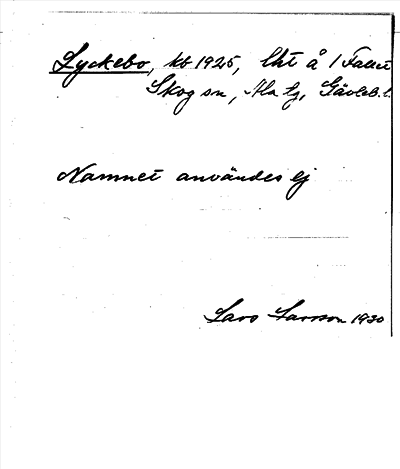 Lyckebo, kb 1925, lht å 1 Fallet
Skog sn, Ala hg, Gävleb. l.
Namnet användes ej
Lars Larsson 1930